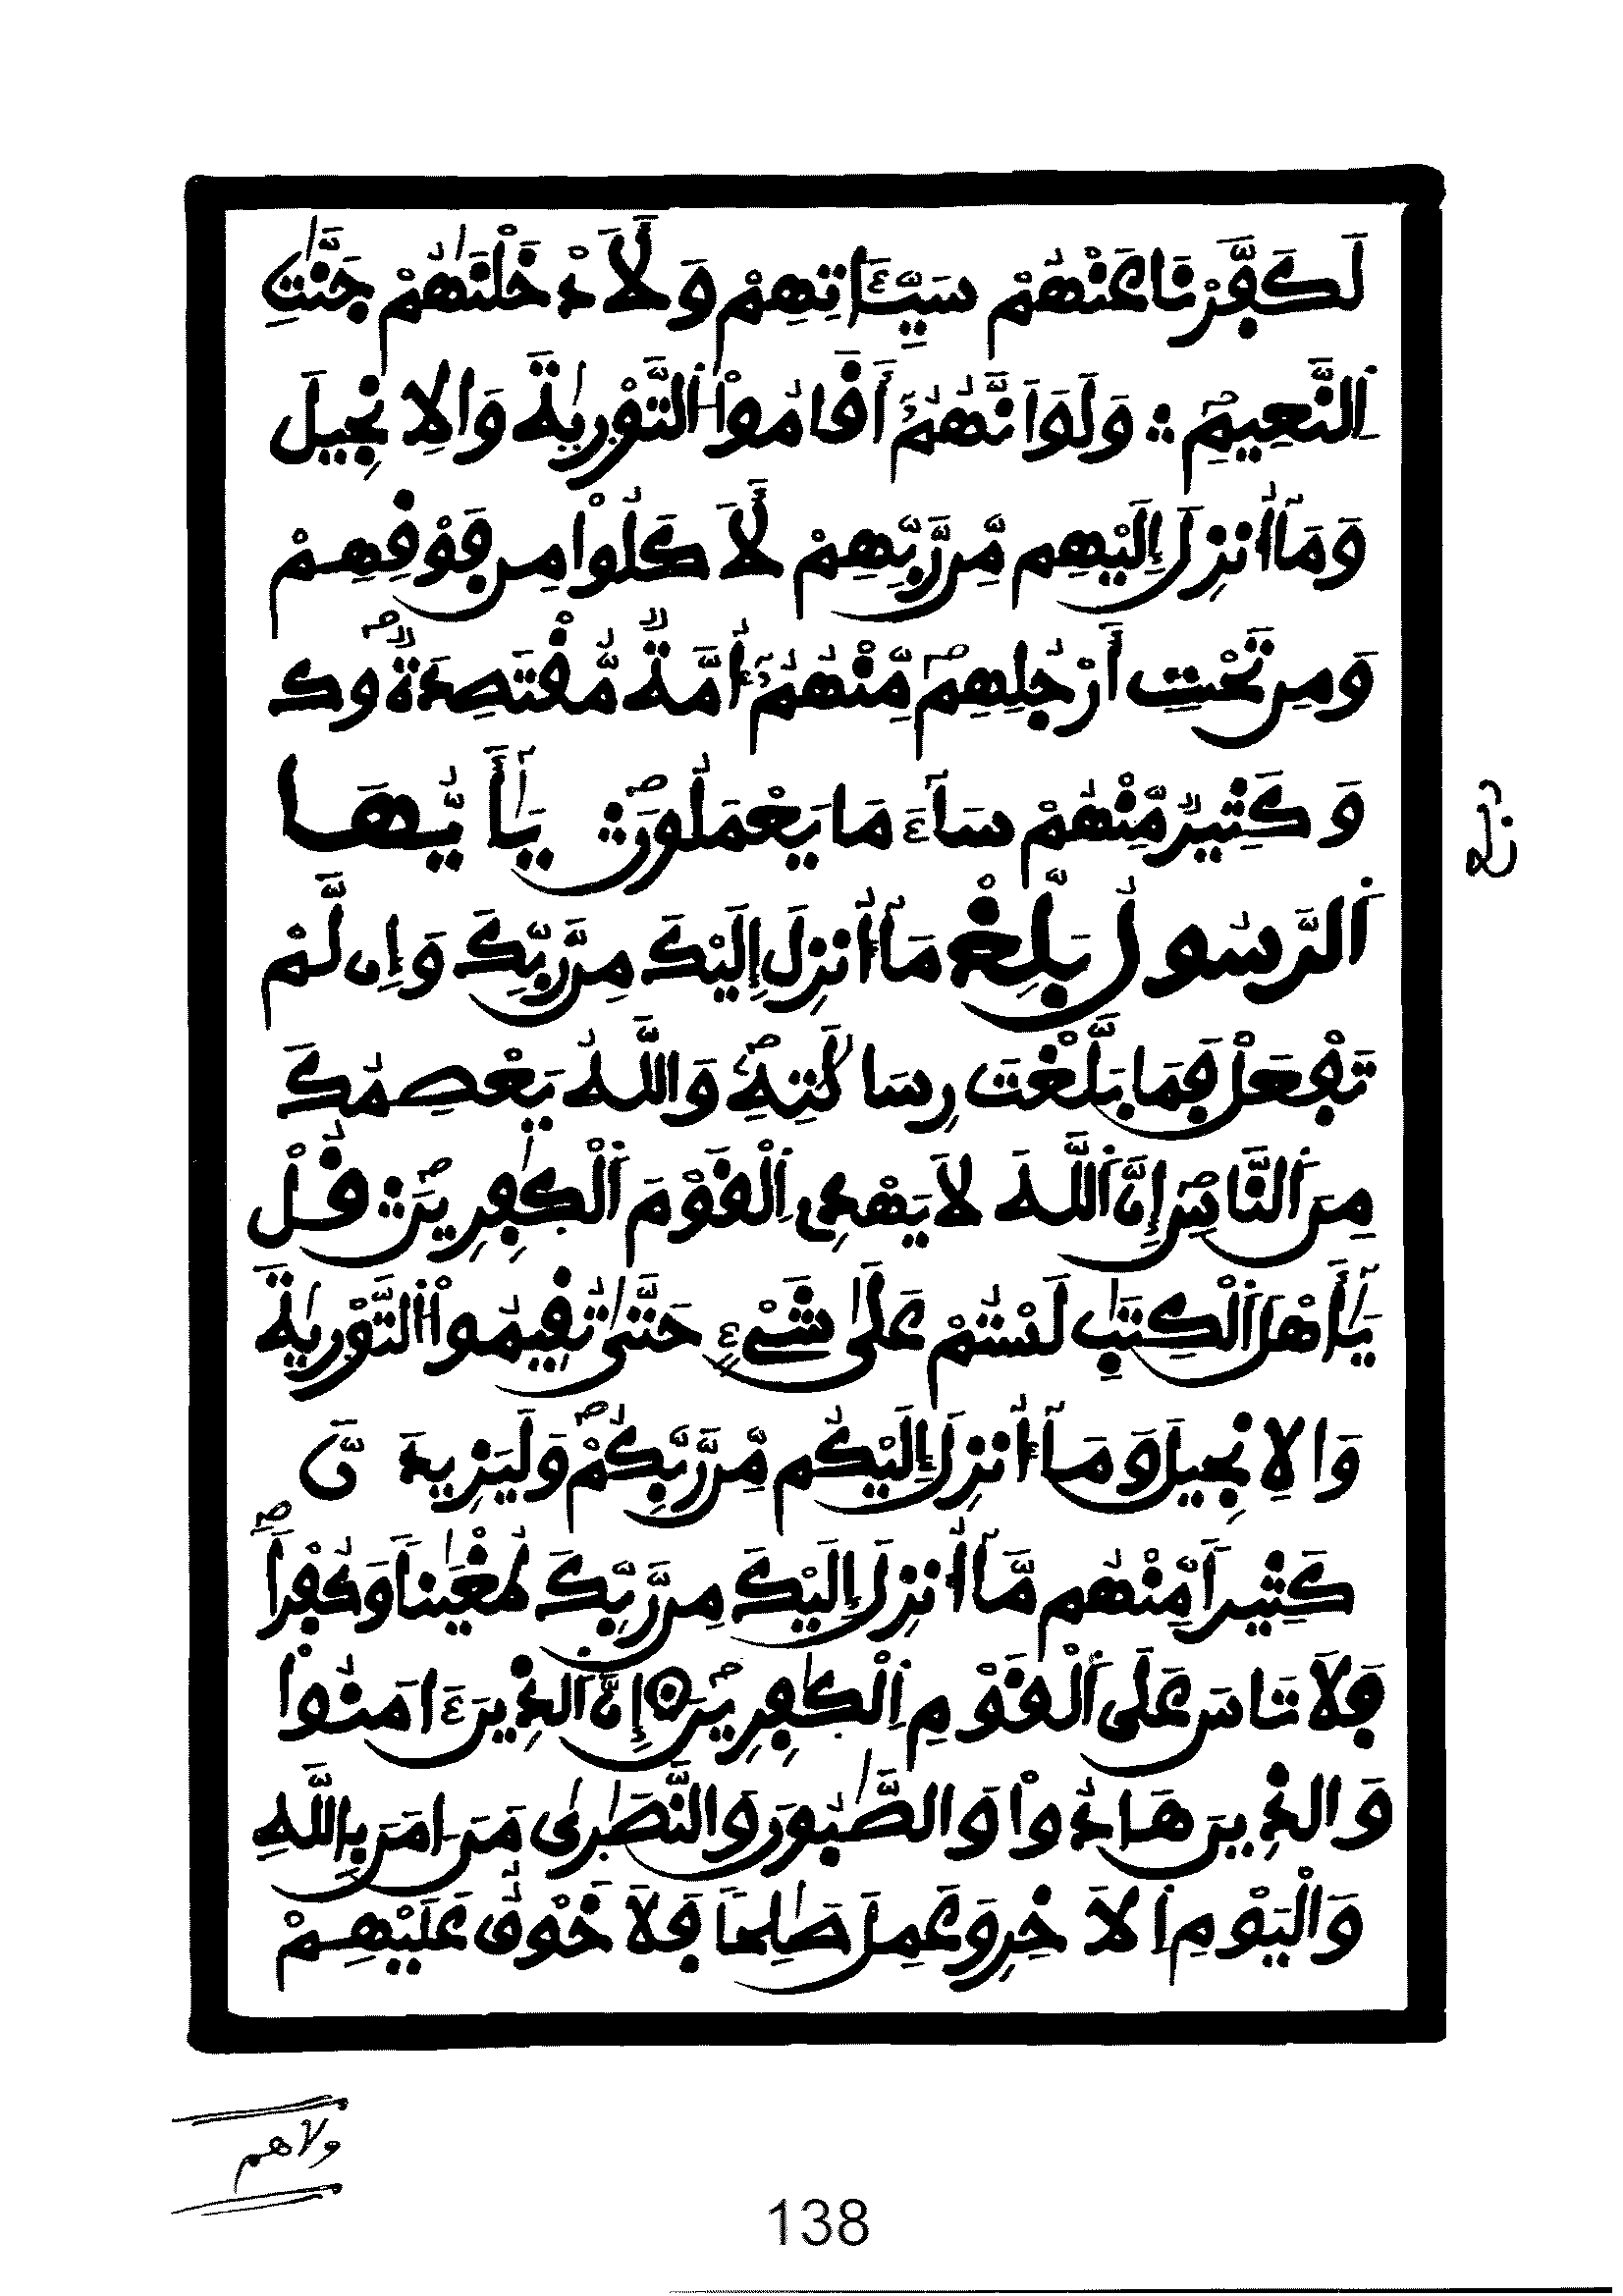 لَكَفَّرْنَا عَنْهُمْ سَيِّـَٔاتِهِمْ وَلَأَدْخَلْنَٰهُمْ جَنَّٰتِ
اِ۬لنَّعِيمِۖ ۞ وَلَوَ اَنَّهُمُۥٓ أَقَامُوا۟ اُ۬لتَّوْر۪يٰةَ وَالِانجِيلَ
وَمَآ أُنزِلَ إِلَيْهِم مِّن رَّبِّهِمْ لَأَكَلُوا۟ مِن فَوْقِهِمْ
وَمِن تَحْتِ أَرْجُلِهِمۖ مِّنْهُمُۥٓ أُمَّةٌ مُّقْتَصِدَةٌۖ وَك
وَكَثِيرٌ مِّنْهُمْ سَآءَ مَا يَعْمَلُونَۖ ۞ يَٰٓأَيُّهَا
اَ۬لرَّسُولُ بَلِّغْ مَآ أُنزِلَ إِلَيْكَ مِن رَّبِّكَ وَإِن لَّمْ
تَفْعَلْ فَمَا بَلَّغْتَ رِسَالَٰتِهِۦۖ وَاللَّهُ يَعْصِمُكَ
مِنَ اَ۬لنَّاسِۖ إِنَّ اَ۬للَّهَ لَا يَهْدِى اِ۬لْقَوْمَ اَ۬لْكَٰفِرِينَۖ ۞ قُلْ
يَٰٓأَهْلَ اَ۬لْكِتَٰبِ لَسْتُمْ عَلَىٰ شَىْءٍ حَتَّىٰ تُقِيمُوا۟ اُ۬لتَّوْر۪يٰةَ
وَالِانجِيلَ وَمَآ أُنزِلَ إِلَيْكُم مِّن رَّبِّكُمْۖ وَلَيَزِيدَنَّ
كَثِيراً مِّنْهُم مَّآ أُنزِلَ إِلَيْكَ مِن رَّبِّكَ طُغْيَٰناً وَكُفْراًۖ
فَلَا تَاسَ عَلَى اَ۬لْقَوْمِ اِ۬لْكَٰفِرِينَۖ ۞ إِنَّ اَ۬لذِينَ ءَامَنُوا۟
وَالذِينَ هَادُوا۟ وَالصَّٰبُونَ وَالنَّصَٰر۪ىٰ مَنَ اٰمَنَ بِاللَّهِ
وَالْيَوْمِ اِ۬لَاخِرِ وَعَمِلَ صَٰلِحاً فَلَا خَوْفٌ عَلَيْهِمْ
ربع
ولا هم
138